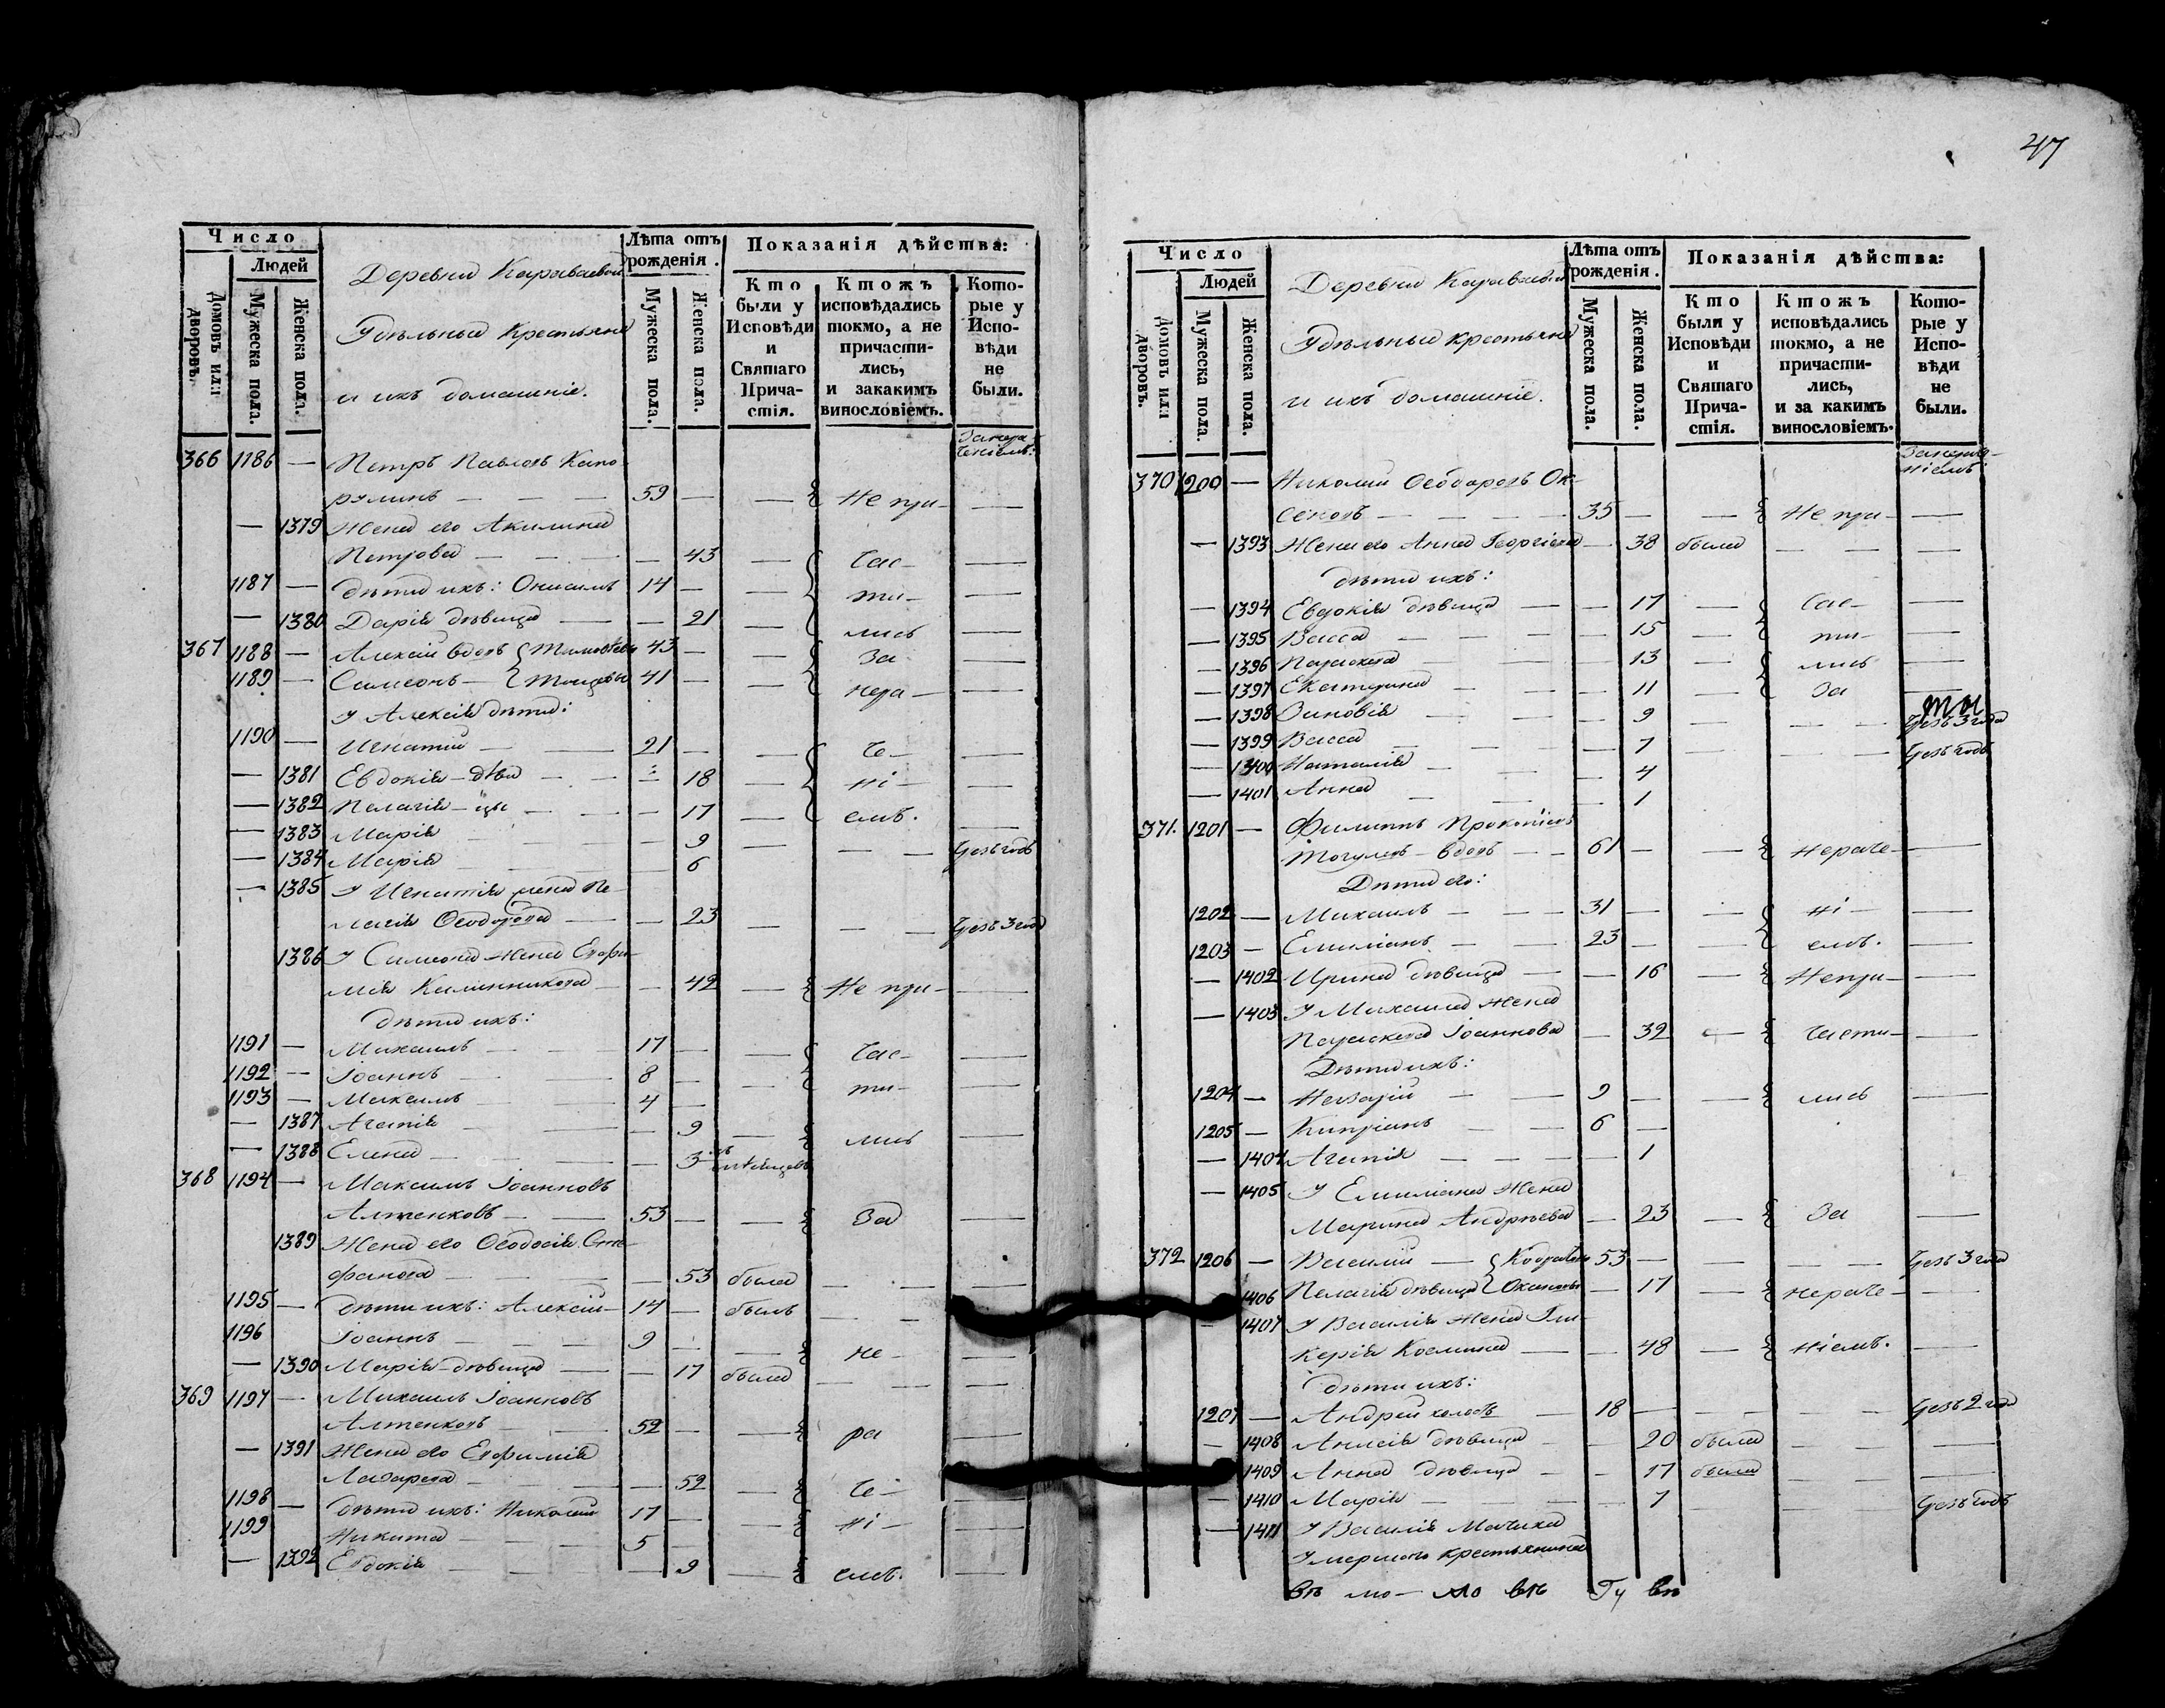 47
Число
Людей
Домовъ или дворовъ.
Мужеска пола.
Женска пола.
Деревни Караваевой
Удѣльныя крестьяне
и ихъ домашніе.
Лѣта отъ рожденія.
Мужеска пола.
Женска пола.
Показанія дѣйства:
Кто были у Исповѣди и Святаго Прича-стія.
Ктожъ исповѣдались токмо, а не причасти-лись, и закакимъ винословіемъ.
Кото-рые у Испо-вѣди не были.
366 1186 — Петръ Павловъ Капо-
рулинъ — 59 — — Не при- —
— 1379 Жена его Акилина
Петрова — — 43 — час- —
1187 — дѣти ихъ: Онисимъ 14 — — ти- —
— 1380 Дарія дѣвица — — 21 — лись —
367 1188 — Алексій вдовъ 43 — — За- —
1189 — Симеонъ — 41 — — нера- —
У Алексія дѣти:
1190 — Игнатій — 21 — — че- —
— 1381 Евдокія — дѣви — 18 — ні- —
— 1382 Пелагія — цы — — 17 — емъ. —
— 1383 Марія — 9 — — —
— 1384 Марія — 6
— 1385 У Игнатія жена Пе-
лагія Ѳеодорова — — 23 — — —
1386 У Симеона жена Евфи-
мія Калинникова — — 42 — Не при- —
дѣти ихъ:
1191 — Михаилъ — 17 — — час- —
1192 — Іоаннъ — 8 — — ти- —
1193 — Максимъ — 4 —
— 1387 Агапія — — 9 — лись —
— 1388 Елена — — 3
368 1194 — Максимъ Іоанновъ
Алтенковъ — 53 — — За —
1389 Жена его Ѳеодосія Сте-
фанова — — 53 была — —
1195 — дѣти ихъ: Алексій — 14 — былъ — —
1196 Іоаннъ — 9 — — не- —
— 1390 Марія — дѣвица — — 17 была — —
369 1197 — Михаилъ Іоанновъ
Алтенковъ 52 — — ра —
— 1391 Жена его Евфимія
Лазарева — — 52 — че- —
1198 — дѣти ихъ: Николай 17 — — ні- —
1199 Никита — 5 —
— 1392 Евдокія — — 9 — емъ. —
Число
Людей
Домовъ или дворовъ.
Мужеска пола.
Женска пола.
Деревни
Удѣльныя крестьяне
и ихъ домашніе.
Лѣта отъ рожденія.
Мужеска пола.
Женска пола.
Показанія дѣйства:
Кто были у Исповѣди и Святаго Прича-стія.
Ктожъ исповѣдались токмо, а не причасти-лись, и за какимъ винословіемъ.
Кото-рые у Испо-вѣди не были.
370 1200 — Николай Ѳеодоровъ Ок-
сеновъ — 35 — — Не при- —
— 1393 Жена его Анна Георгіева — 38 была — —
дѣти ихъ:
— 1394 Евдокія дѣвица — — 17 — час- —
— 1395 Васса — — 15 — ти- —
— 1396 Параскева — 13 — лись —
— 1397 Екатерина — — 11 — За —
— 1398 Зиновія — — 9 — —
— 1399 Васса — 7 — —
— 1400 Наталія — — 4
— 1401 Анна — — 1
371. 1201 — Филиппъ Прокопіевъ
— вдовъ — 61 — — нераче- —
Дѣти его:
1202 — Михаилъ — 31 — — ні- —
1203 — Емиліанъ — 23 — — емъ. —
— 1402 Ирина дѣвица — — 16 — Непри- —
— 1403 У Михаила жена
Параскева Іоаннова — 32 — части- —
Дѣти ихъ:
1204 — Назарій — 9 — — лись —
1205 — Кипріанъ — 6 —
— 1404 Агапія — — 1
— 1405 У Емиліана жена
Марина Андреева — 23 — За —
372 1206 — Василій — 53 — — —
1406 Пелагія дѣвица — 17 — нераче- —
1407 У Василія жена Гли-
керія Космина — — 48 — ніемъ. —
дѣти ихъ:
1207 — Андрей холостъ — 18 — — —
— 1408 Анисія дѣвица — — 20 была — —
1409 Анна дѣвица — — 17 была — —
— 1410 Марія — — 7 — —
— 1411 У Василія Мачиха
Умершаго крестьянина